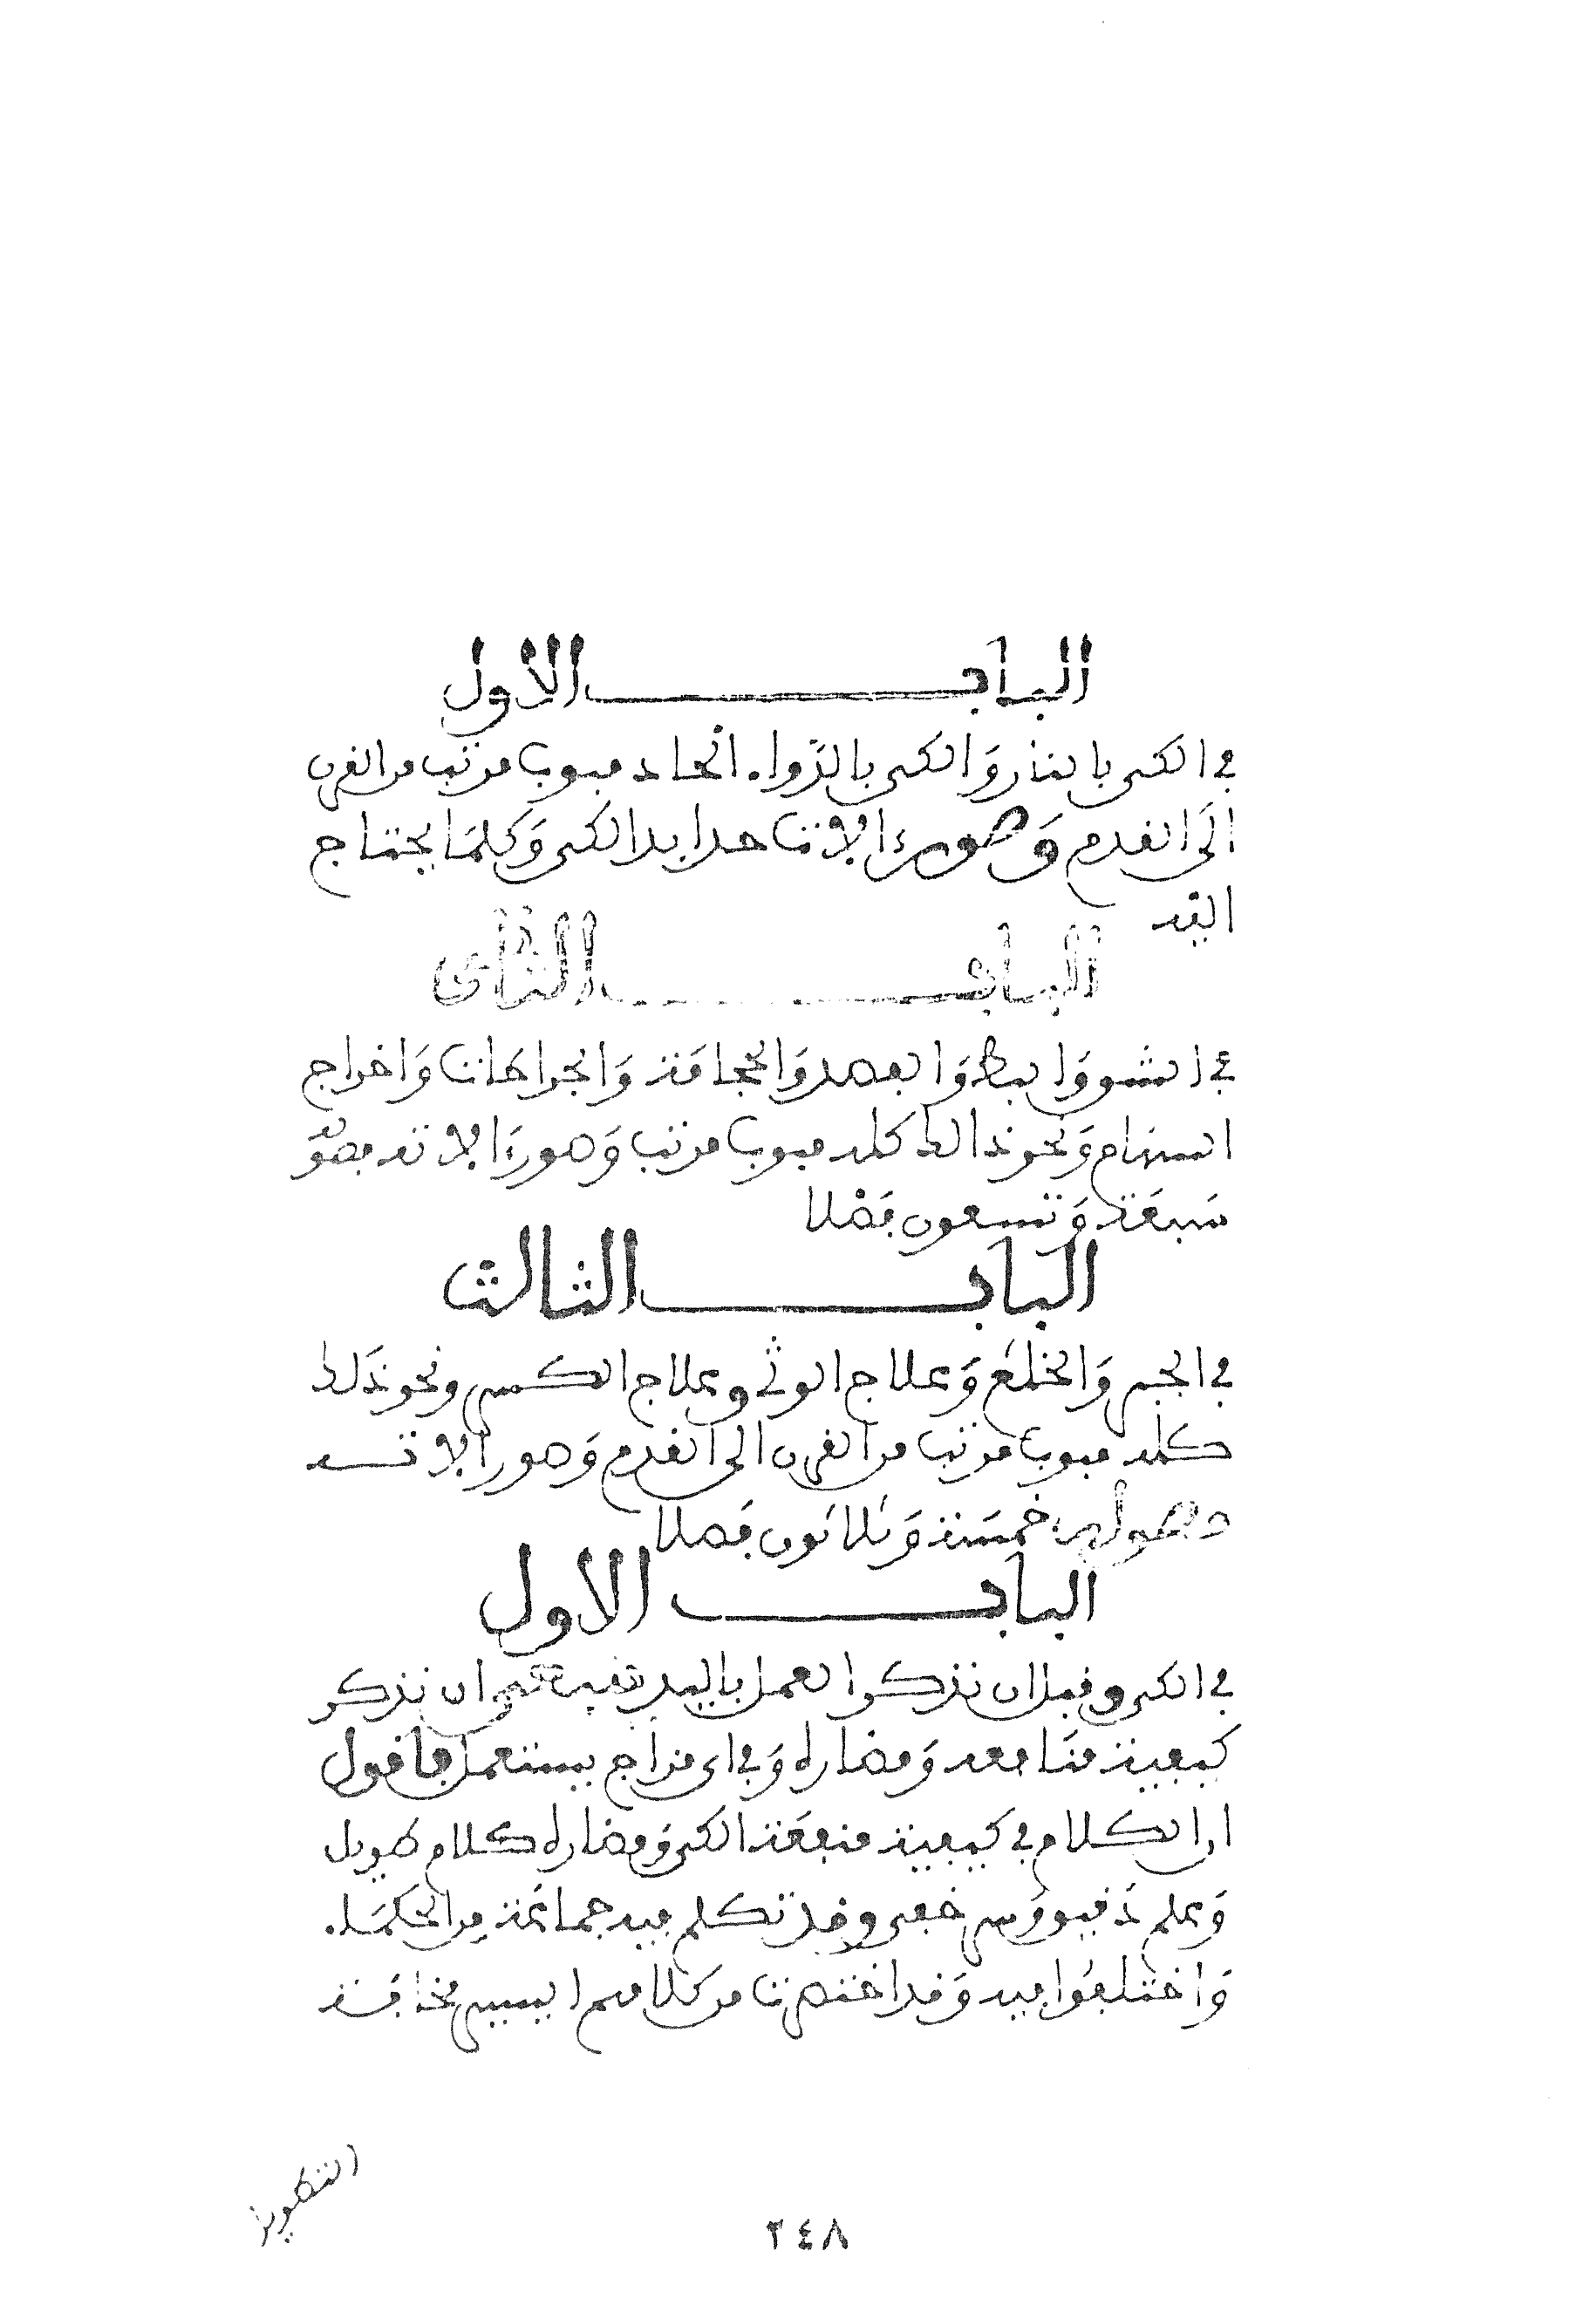 الباب الاول
في الكى بالنار والكى بالدواء الحاد مبوب مرتب من القرن
الى القدم وصور الالات حدايد الكى وكلما يحتاج
اليه
الباب الثانى
في الشق والبط والفصد والحجامة والجراحات واخراج
السهام ونحو ذالك كله مبوب مرتب وصور الالاته فصوله
سبعة وتسعون فصلا
الباب الثالث
في الجبر والخلع وعلاج الوثى وعلاج الكسر ونحو ذلك
كله مبوب مرتب من القرن الى القدم وصور الاته
وفصوله خمسة وثلاثون فصلا
الباب الاول
في الكى وقبل ان نذكر العمل باليد فيه ان نذكر
كيفية منافعه ومضاره وفي اى مزاج يستعمل فاقول
ان الكلام في كيفية منفعة الكى ومضاره كلام طويل
وعلم دقيق وسر خفى وقد تكلم فيه جماعة من الحكماء
واختلفوا فيه وقد اختصرت من كلامهم اليسير مخافة
التطويل
٢٤٨